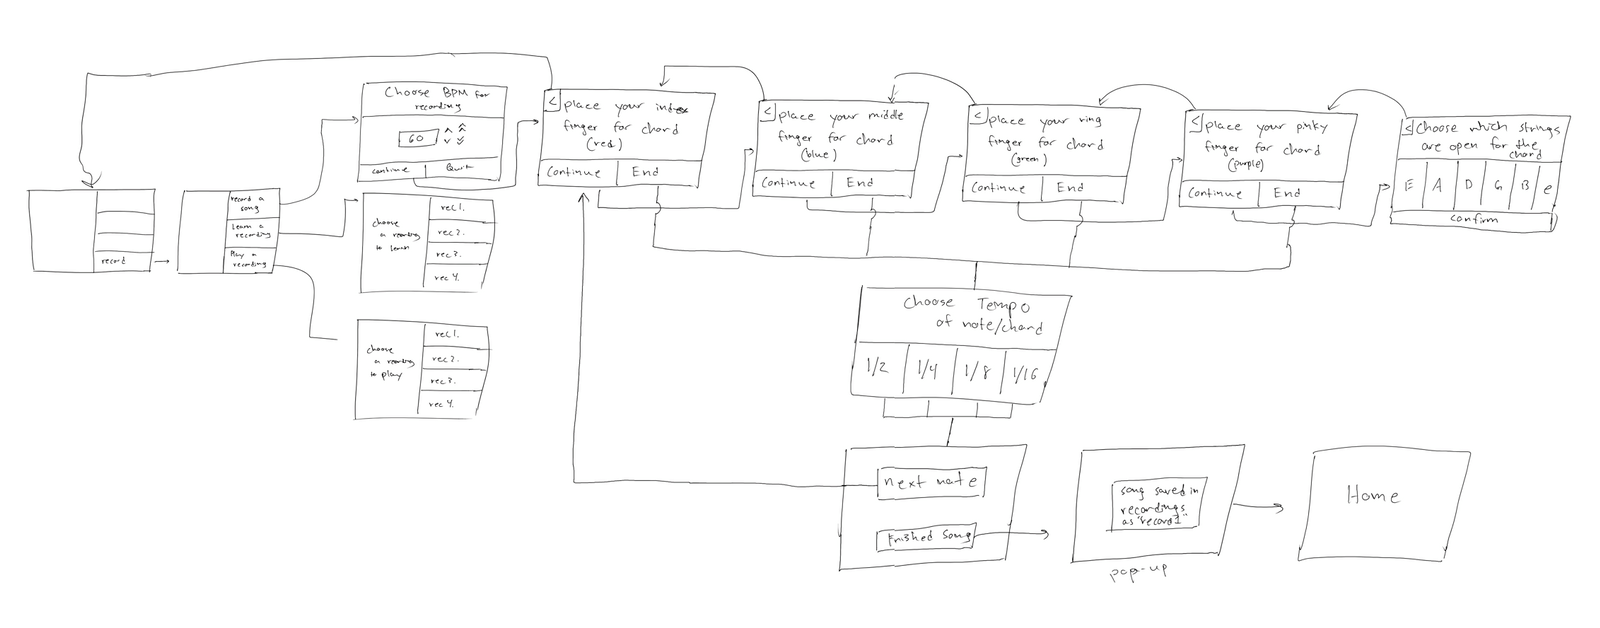 record
record a
song
Learn a
recording
Play a
recording
Choose BPM for
recording
60
continue
Quit
choose
a recording
to learn
rec 1.
rec 2.
rec 3.
rec 4.
choose
a recording
to play
rec 1.
rec 2.
rec 3.
rec 4.
< place your index
finger for chord
(red)
Continue
End
< place your middle
finger for chord
(blue)
Continue
End
< place your ring
finger for chord
(green)
Continue
End
< place your pinky
finger for chord
(purple)
Continue
End
< Choose which strings
are open for the
chord
E A D G B e
confirm
Choose Tempo
of note/chord
1/2 1/4 1/8 1/16
next note
Finished Song
song saved in
recordings
as "record1"
pop-up
Home